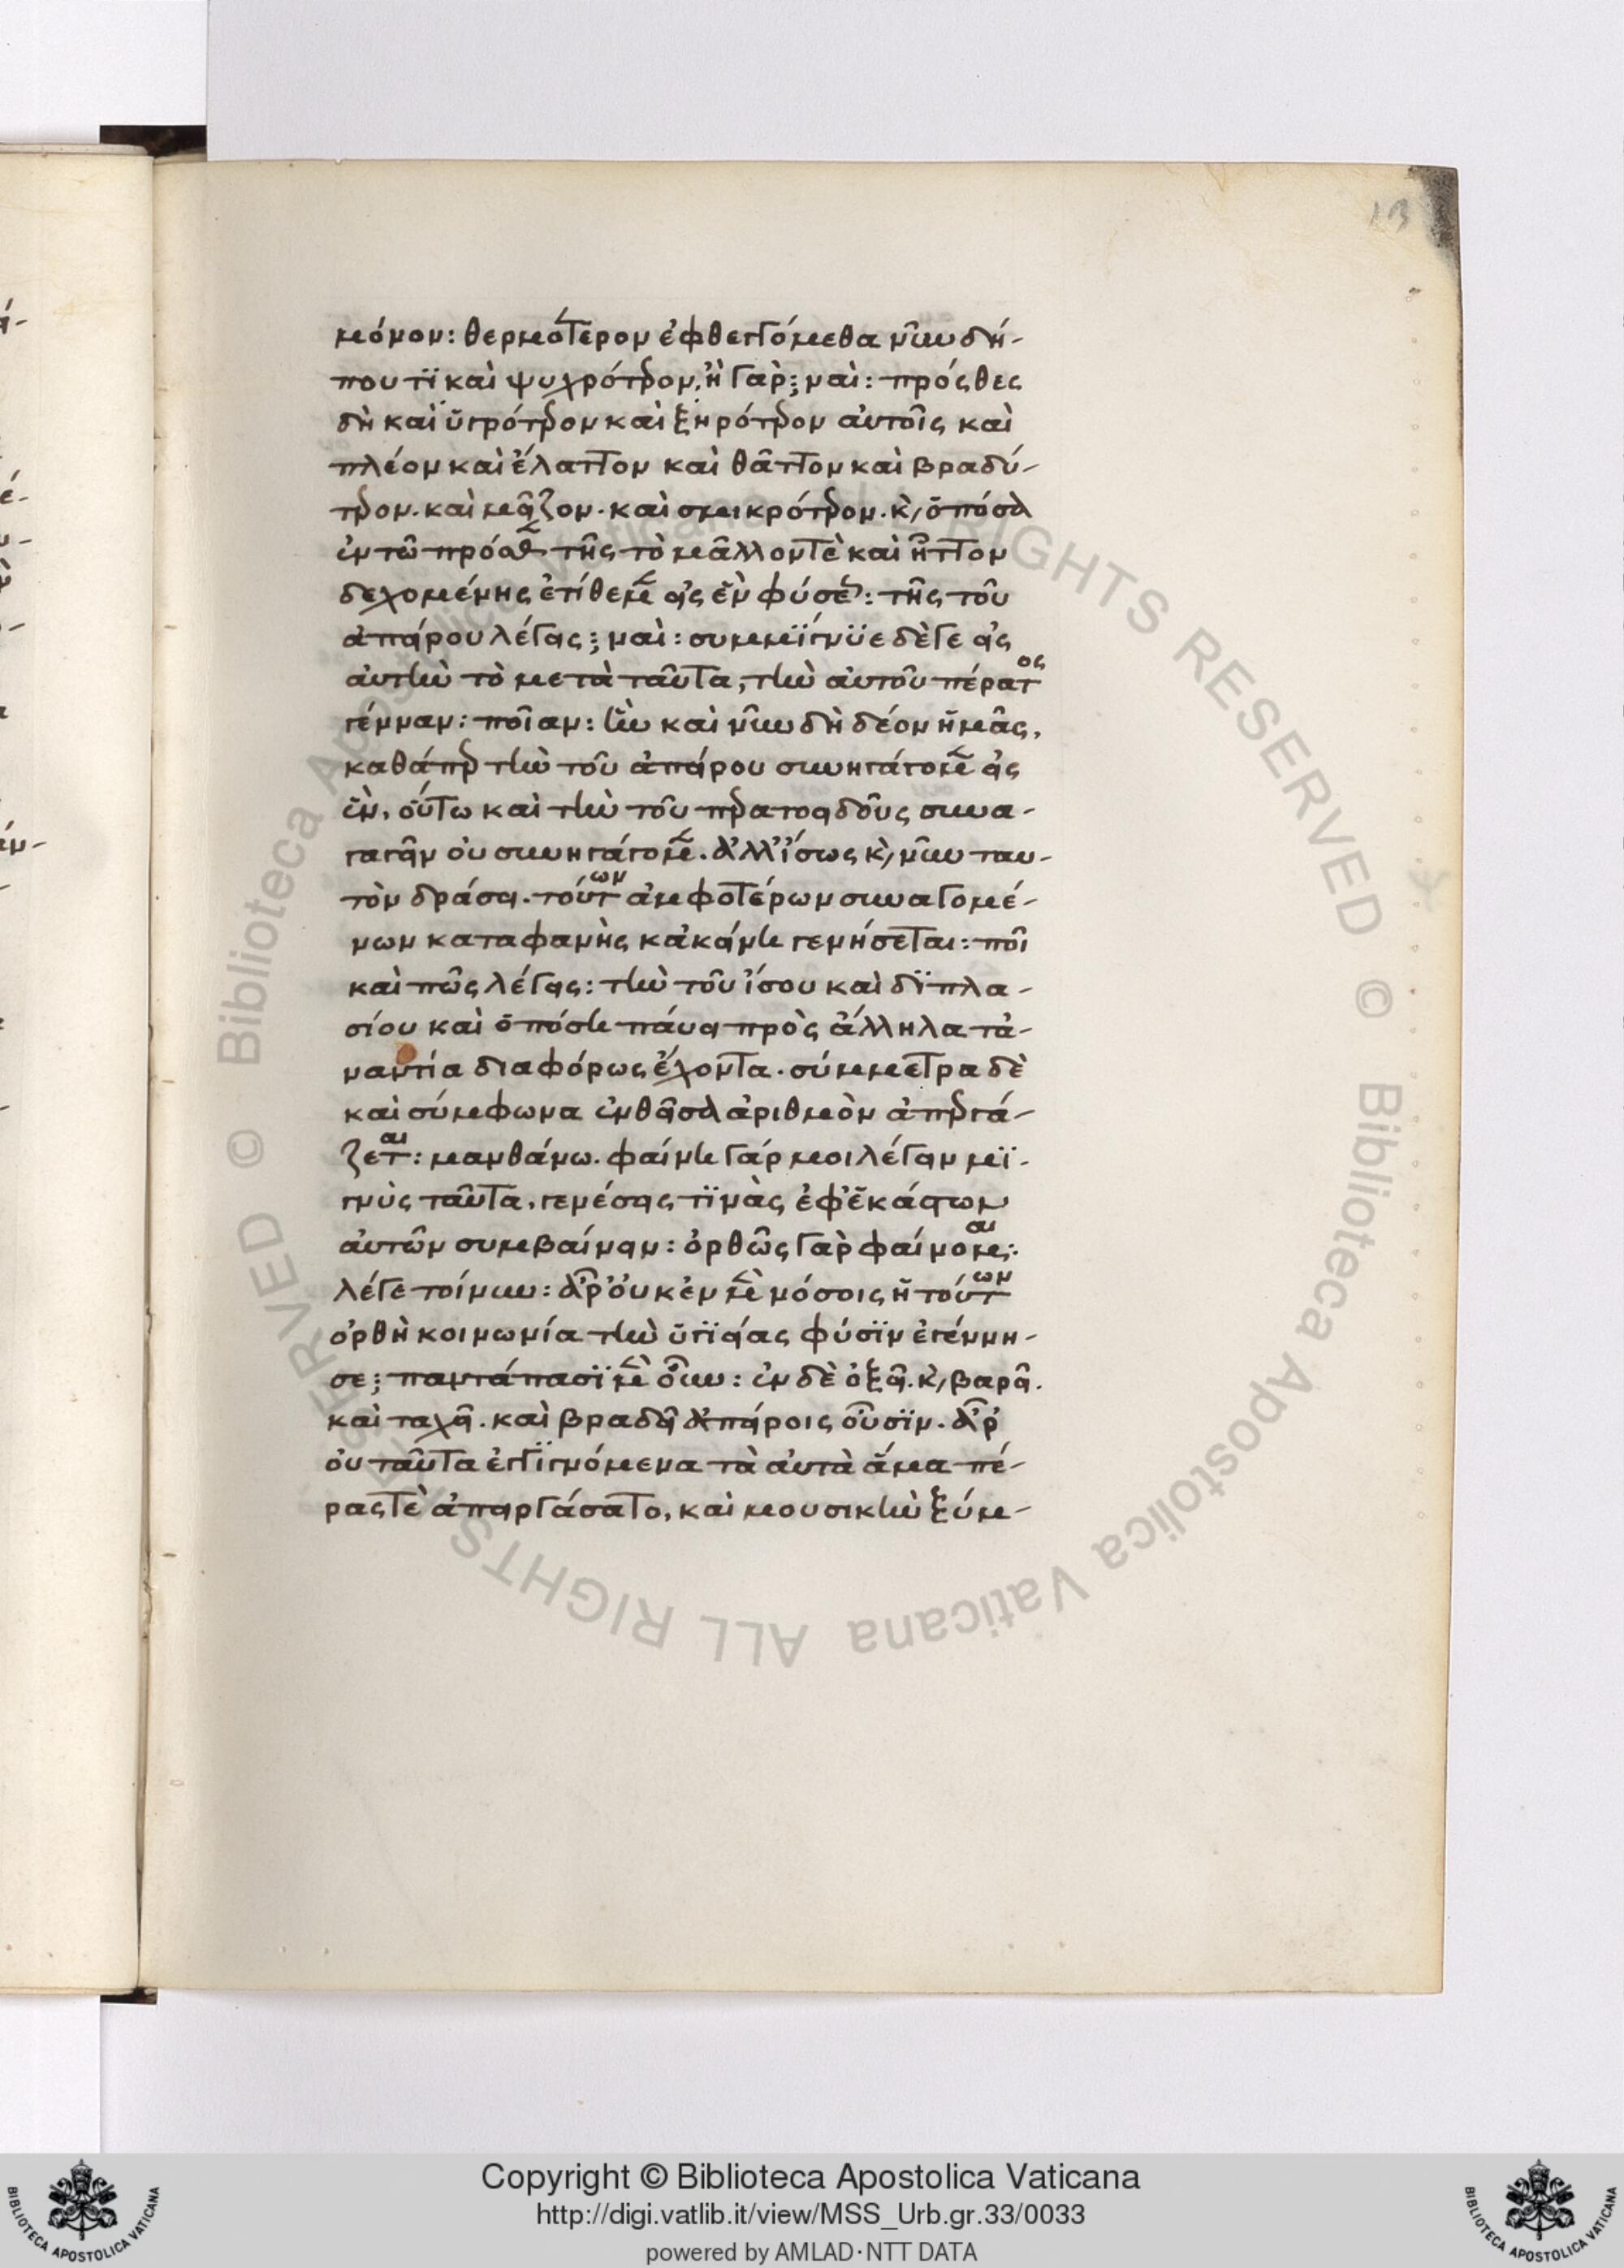 13
μόνον: θερμότερον ἐφθεγγόμεθα νῦν δή-
που τϊ καὶ ψυχρότερον. ἢ γάρ; ναὶ: πρόςθες
δὴ καὶ ὑγρότερον καὶ ξηρότερον αὐτοῖς καὶ
πλέον καὶ ἔλαττον καὶ θᾶττον καὶ βραδύ-
τερον. καὶ μεῖζον. καὶ σμικρότερον. κ, ὁπόσα
ἐν τῶ πρόσθεν τῆς τὸ μᾶλλόν τὲ καὶ ἧττον
δεχομένης ἐτίθεμεν εἰς ἓν φύσεως: τῆς τοῦ
ἀπείρου λέγεις; ναὶ: συμμϊγνϋε δέ γε εἰς
αὐτὴν τὸ μετὰ ταῦτα, τὴν αὐτοῦ πέρατος
γένναν: ποῖαν: ἣν καὶ νῦν δὴ δέον ἡμᾶς,
καθάπερ τὴν τοῦ ἀπείρου συνηγάγομεν εἰς
ἓν, οὕτω καὶ τὴν τοῦ περατοειδοῦς συνα-
γαγεῖν οὐ συνηγάγομεν. ἀλλ' ἴσως κ, νῦν ταυ-
τὸν δράσει. τούτων ἀμφοτέρων συναγομέ-
νων καταφανὴς κἀκείνη γενήσεται: ποῖ
καὶ πῶς λέγεις: τὴν τοῦ ἴσου καὶ δϊπλα-
σίου καὶ ὁπόση παύει πρὸς ἄλληλα τἀ-
ναντία διαφόρως ἔχοντα. σύμμετρα δὲ
καὶ σύμφωνα ἐνθεῖσα ἀριθμὸν ἀπεργά-
ζεται: μανθάνω. φαίνη γάρ μοι λέγειν μϊ-
γνὺς ταῦτα, γενέσεις τϊνὰς ἐφ' ἑκάστων
αὐτῶν συμβαίνειν: ὀρθῶς γὰρ φαίνομαι:
λέγε τοίνυν: ἆρ' οὐκ ἐν μὲν νόσοις ἡ τούτων
ὀρθὴ κοινωνία τὴν ὑγϊείας φύσϊν ἐγέννη-
σε; παντάπασϊ μὲν οὖν: ἐν δὲ ὀξεῖ. κ, βαρεῖ.
καὶ ταχεῖ. καὶ βραδεῖ ἀπείροις οὖσϊν. ἆρ'
οὐ ταῦτα ἐγγϊγνόμενα τὰ αὐτὰ ἅμα πέ-
ρας τὲ ἀπειργάσατο, καὶ μουσικὴν ξύμ-
Copyright © Biblioteca Apostolica Vaticana
http://digi.vatlib.it/view/MSS_Urb.gr.33/0033
powered by AMLAD·NTT DATA